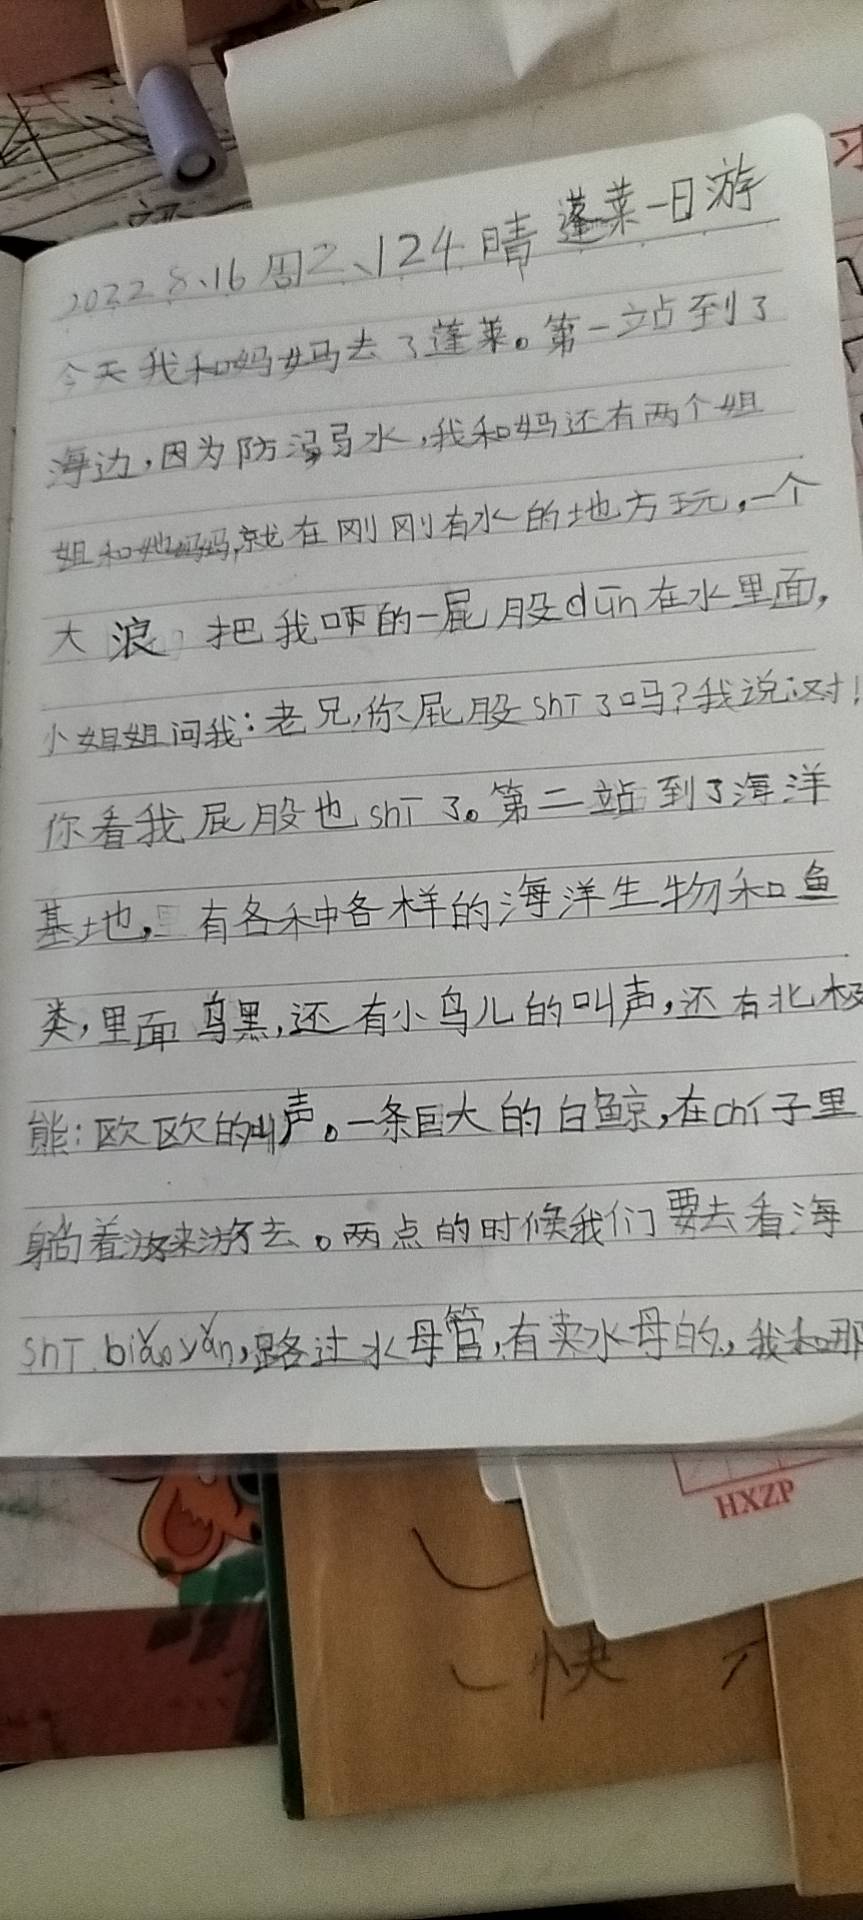 2022 8、16 周二、124 晴 蓬莱一日游
今天我和妈妈去了蓬莱。第一站到了
海边,因为防溺水,我和妈还有两个姐
姐和她妈妈,就在刚刚有水的地方玩,一个
大浪 把我吓的一屁股dūn在水里面,
小姐姐问我:老兄,你屁股shī了吗?我说:对!
你看我屁股也shī了。第二站到了海洋
基地,里有各种各样的海洋生物和鱼
类,里面乌黑,还有小鸟儿的叫声,还有北极
熊:欧欧的叫声。一条巨大的白鲸,在chí子里
躺着游来游去。两点的时候我们要去看海
shī biǎoyǎn,路过水母管,有卖水母的,我和那
HXZP
快